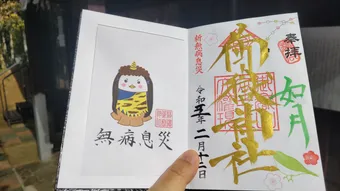 奉拝
如月
御嶽神社
祈無病息災
令和五年二月十二日
無病息災